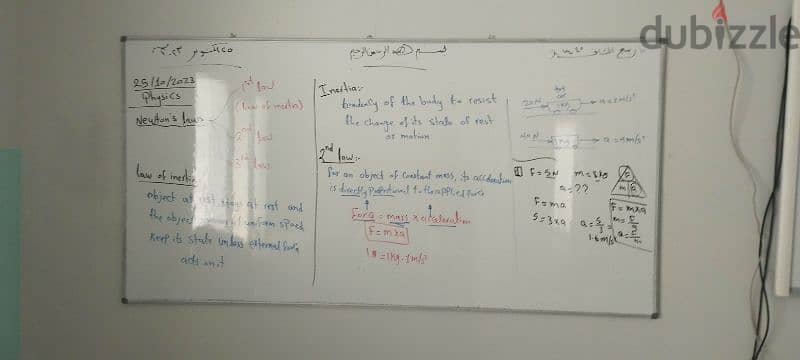 dubizzle
٢٥ أكتوبر ٢٠٢٣
بسم الله الرحمن الرحيم
25/10/2023
Physics
Newton's laws
1st law
(law of inertia)
2nd law
3rd law
law of inertia
object at rest stays at rest and
the object moving at uniform speed
keep its state unless external force
acts on it
Inertia:-
tendency of the body to resist
the change of its state of rest
or motion
2nd law:-
for an object of constant mass, its acceleration
is directly proportional to the applied force
Force = mass x acceleration
F = mxa
1N = 1kg . 1m/s²
a = 2m/s²
a = 4m/s²
F = 5N m = 3kg
a = ??
F = ma
5 = 3xa
a = 5/3 =
1.6 m/s²
F
m a
F = mxa